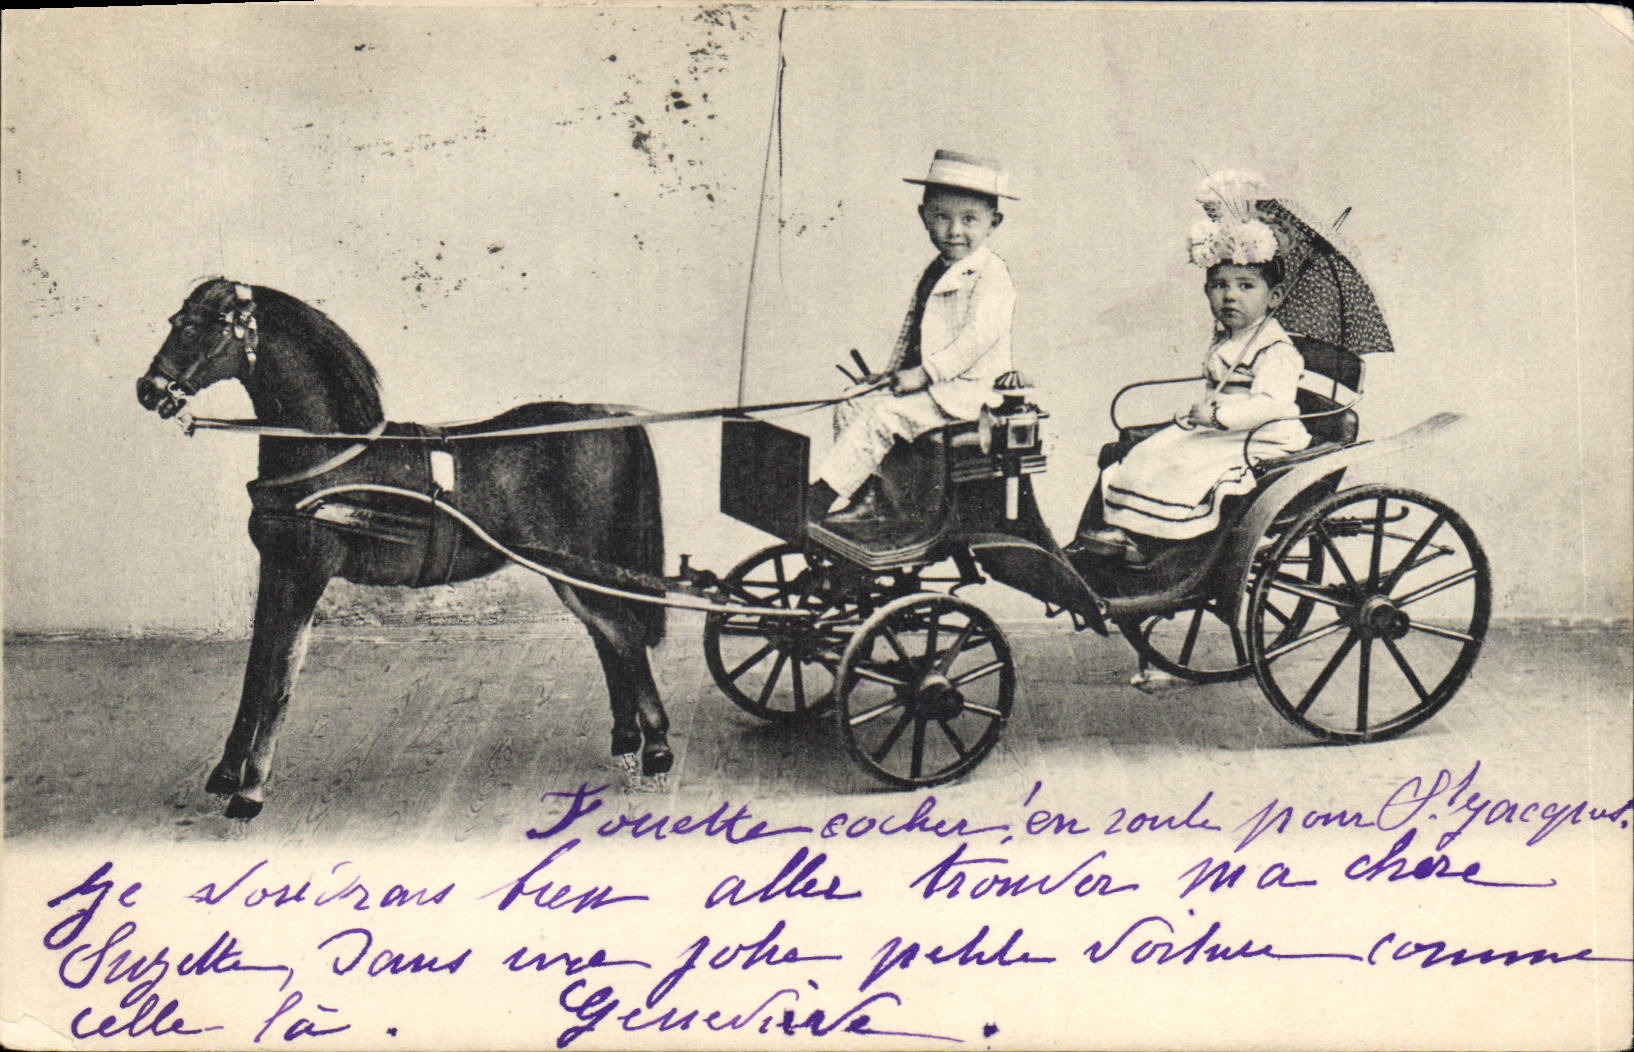 Fouette cocher! en route pour St Jacques.
Je voudrais bien aller trouver ma chère
Suzette, dans une jolie petite voiture comme
celle là. Geneviève.